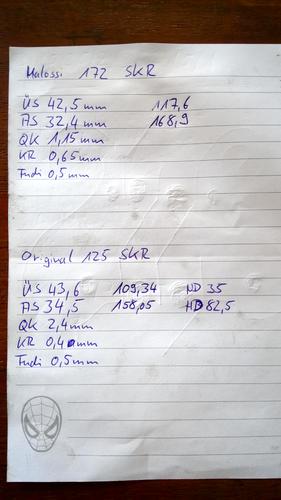 Malossi 172 SKR
ÜS 42,5mm 117,6
AS 32,4mm 168,9
QK 1,15mm
KR 0,65mm
Fudi 0,5mm
Original 125 SKR
ÜS 43,6 109,34 ND 35
AS 34,5 158,05 HD 82,5
QK 2,4mm
KR 0,4mm
Fudi 0,5mm